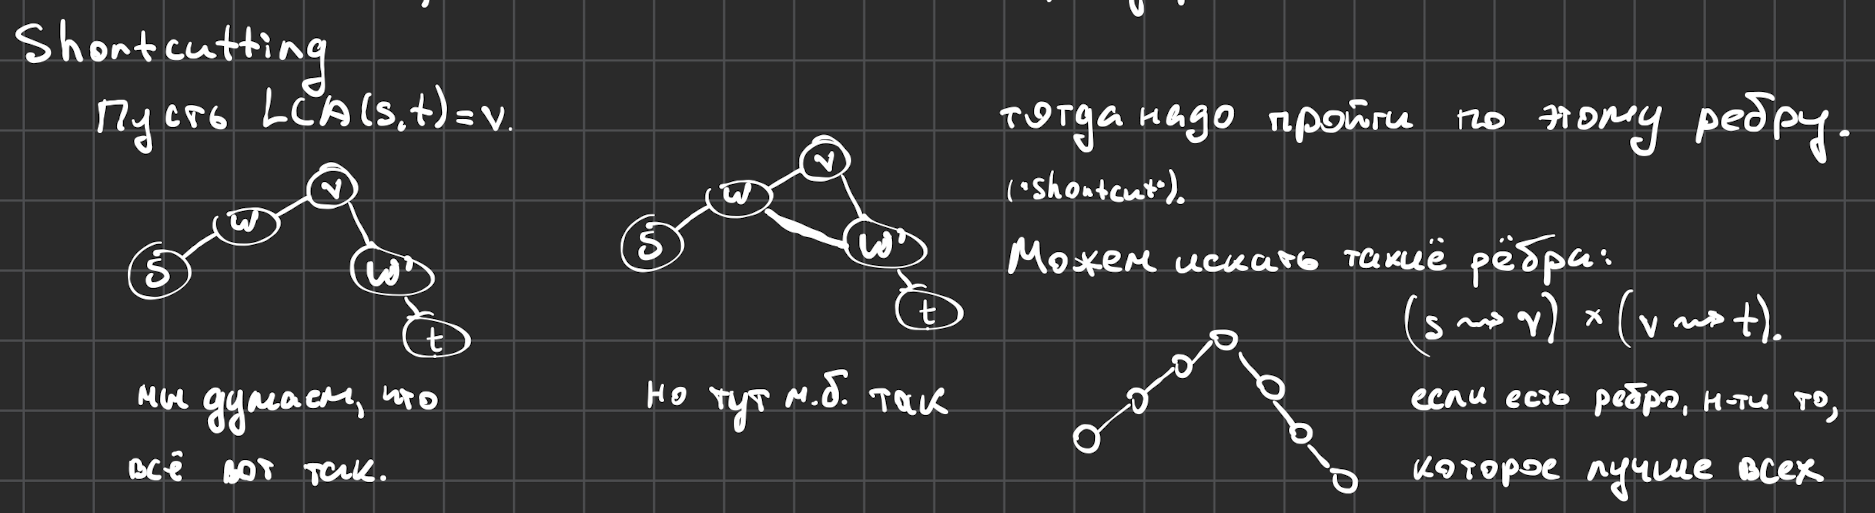 Shortcutting
Пусть LCA(s,t)=v.
v
w
s
w'
t
мы думаем, что
всё вот так.
v
w
s
w'
t
но тут м.б. так
тогда надо пройти по этому ребру.
("shortcut").
Можем искать такие рёбра:
(s ⇝ v) × (v ⇝ t).
если есть ребро, н-ти то,
которое лучше всех